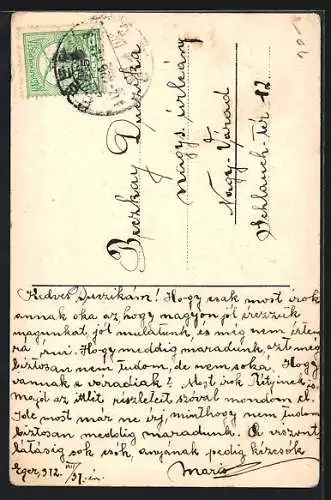 Beczkay Duczika
nagys. úrleány
Nagy-Várad
Schlauch-tér 12
Kedves Duczikám! Hogy csak most írok
annak oka az, hogy nagyon jól érezzük
magunkat, jót mulatunk, és még nem értem
rá írni. Hogy meddig maradunk, azt még
biztosan nem tudom, de nem soká. Hogy
vannak a váradiak? Most írok Rityinek is,
majd az ittlét részleteit szóval mondom el.
Ide most már ne írj, minthogy nem tudom
biztosan meddig maradunk. A viszont
látásig sok csók, anyjának pedig kézcsók
Eger, 912. VIII/31.-én. Maris